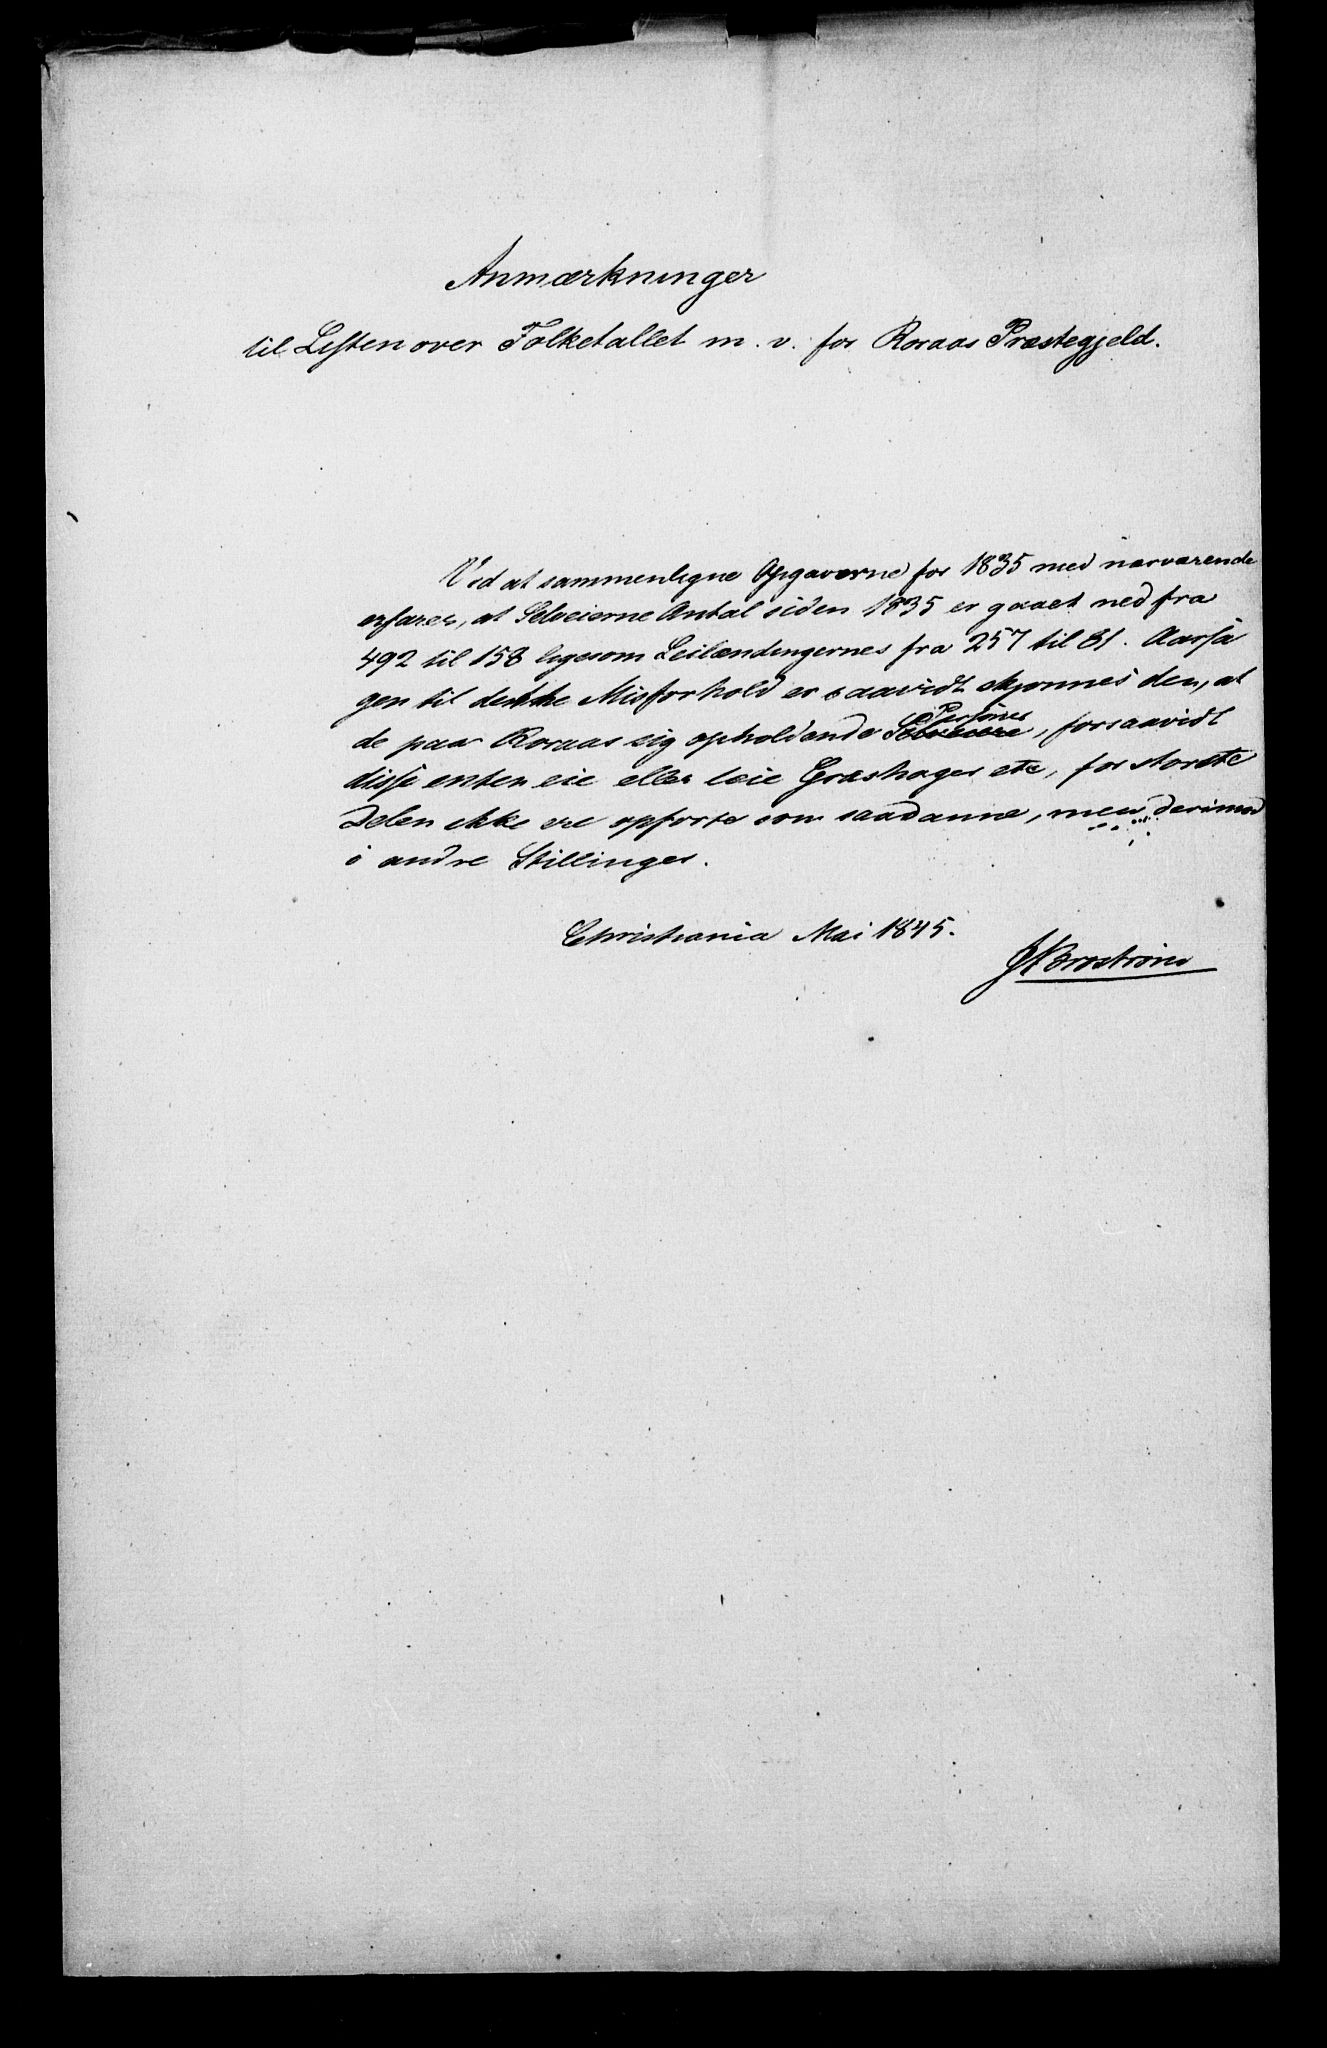 Anmærkninger
til Listen over Folketallet m. v. for Roraas Præstegjeld.
Ved at sammenligne Opgaverne for 1835 med nærværende
erfares, at Selveierne Antal siden 1835 er gaaet ned fra
492 til 158 ligesom Leilændingernes fra 257 til 81. Aarsa
gen til dette Misforhold er saavidt skjønnes den, at
Personer
de paa Roraas sig opholdende Selveiere, forsaavidt
disse enten eie eller leie Græshager etc, for største
Delen ikke ere opførte som saadanne, men derimod
i andre Stillinger.
Christiania Mai 1845.